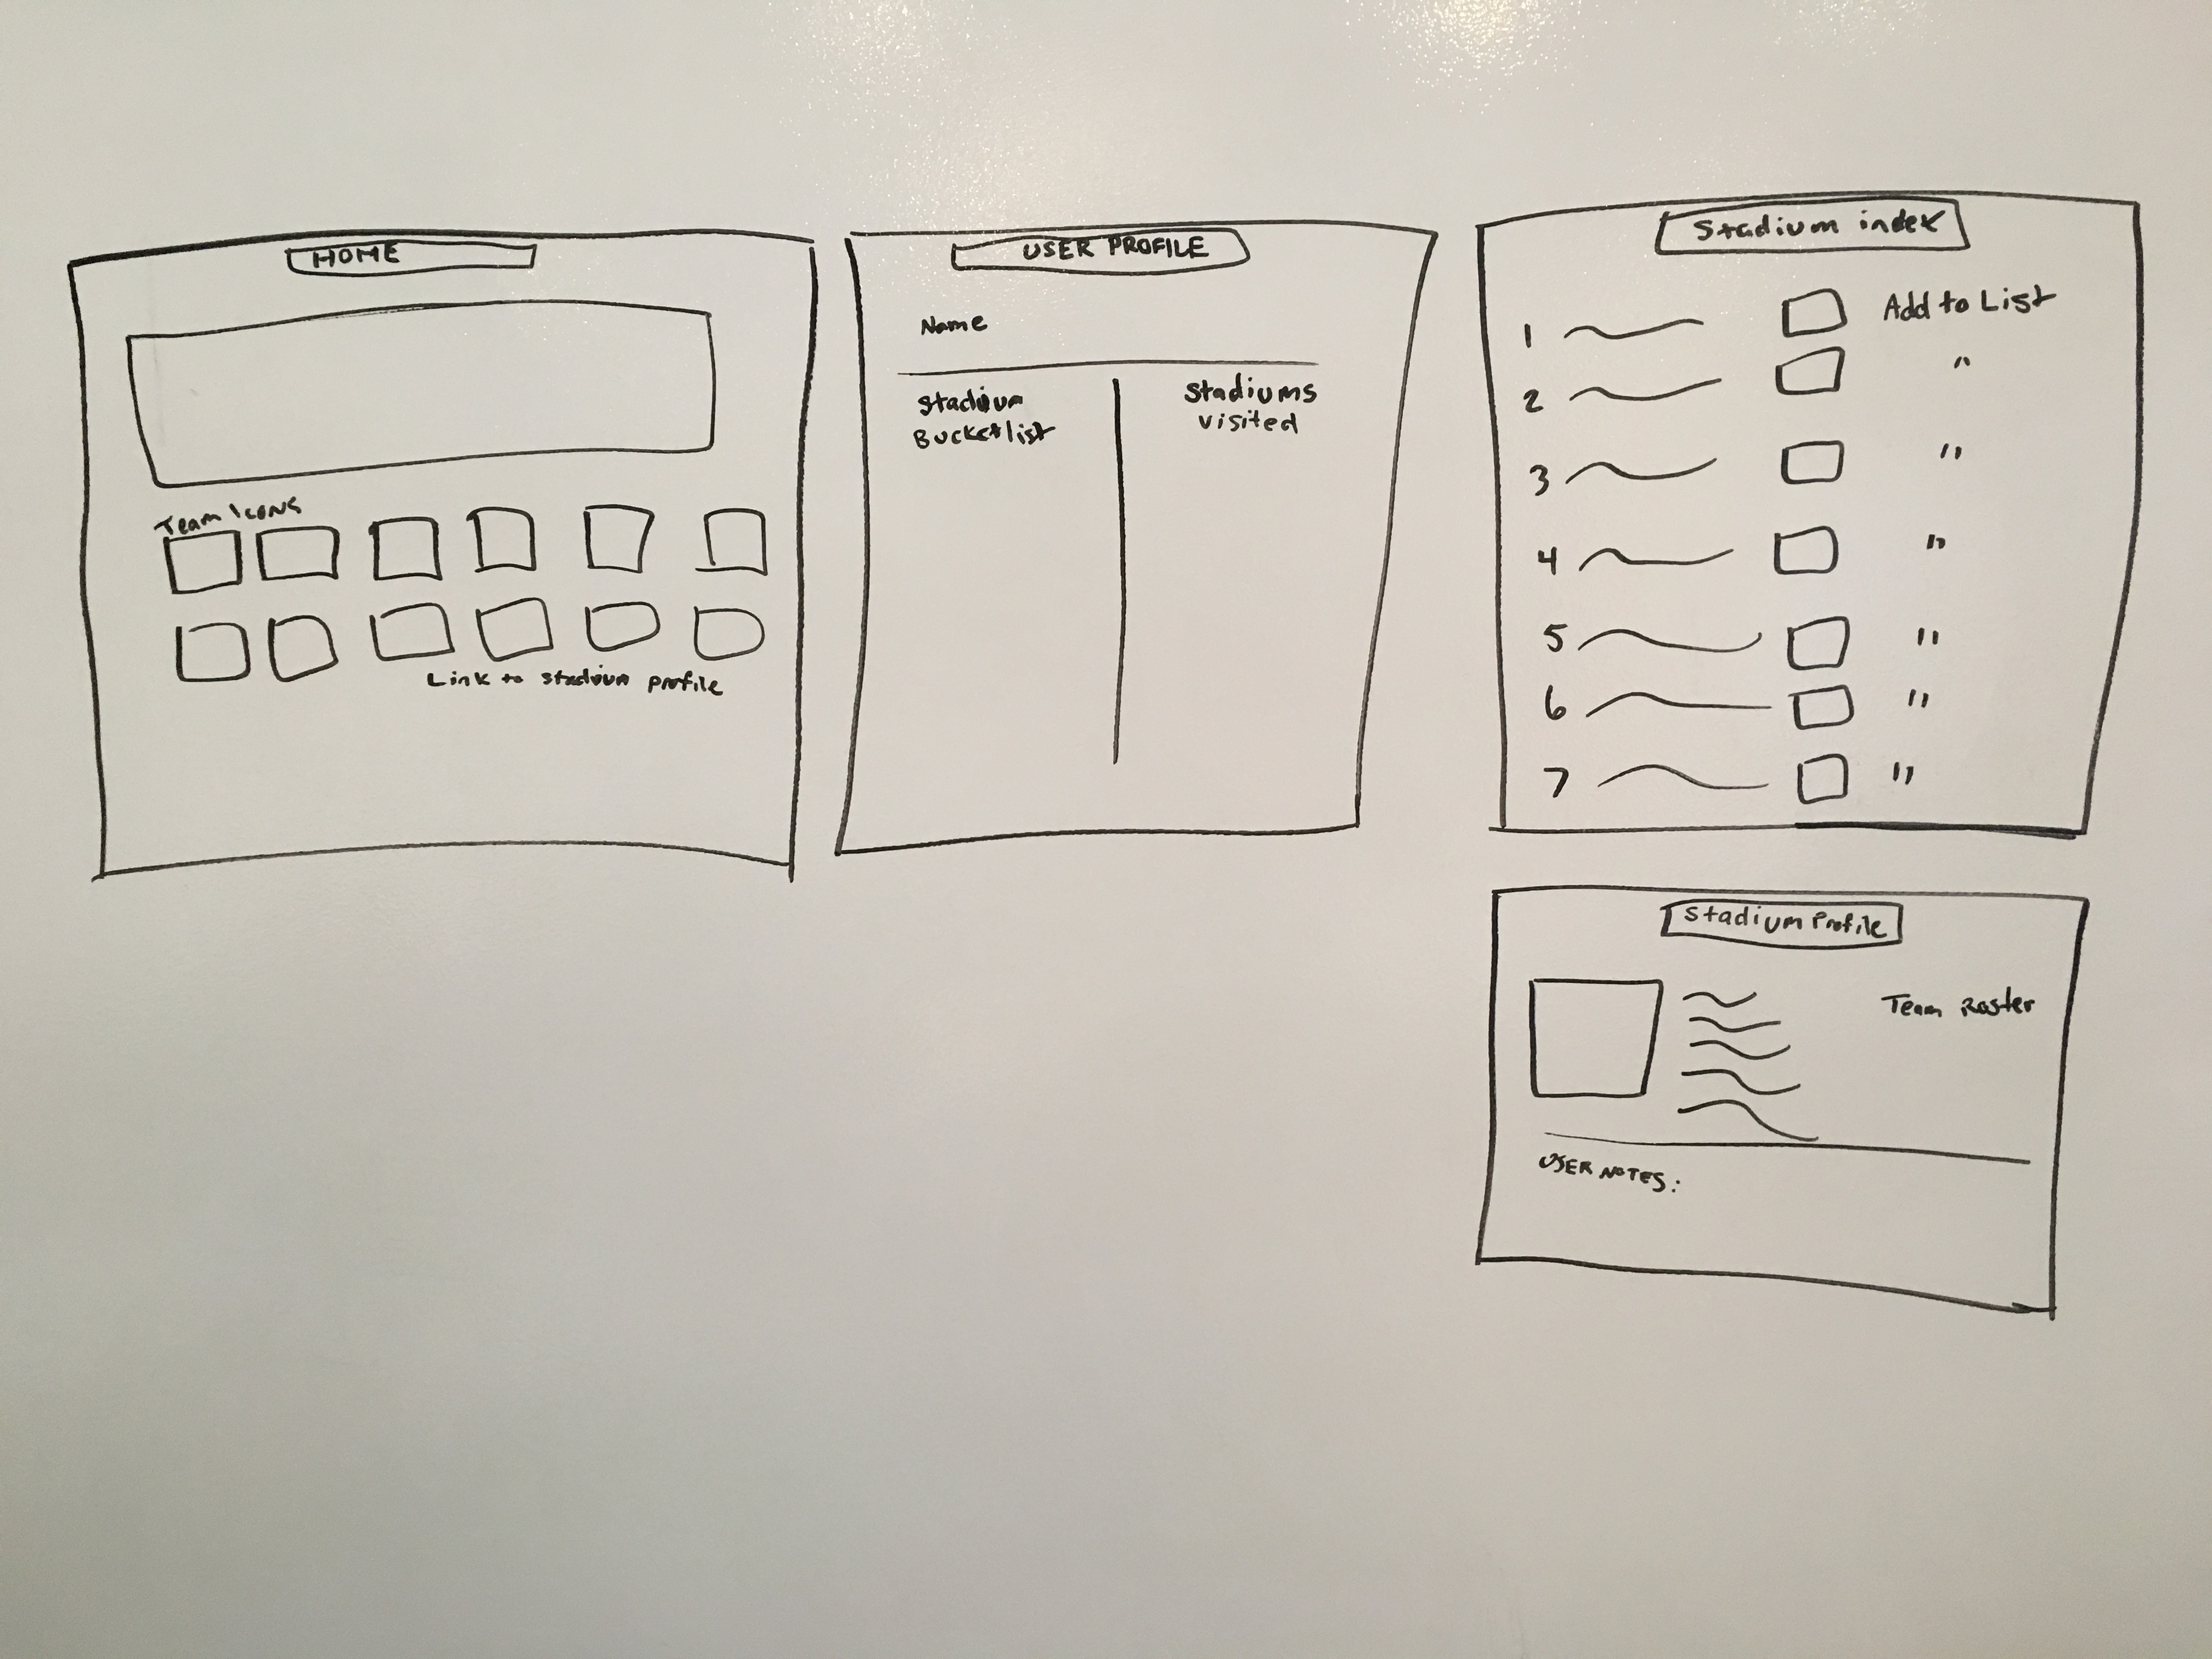 HOME
Team Icons
Link to stadium profile
USER PROFILE
Name
Stadium
Bucketlist
Stadiums
visited
Stadium index
1 Add to List
2 "
3 "
4 "
5 "
6 "
7 "
Stadium Profile
Team Roster
USER NOTES: